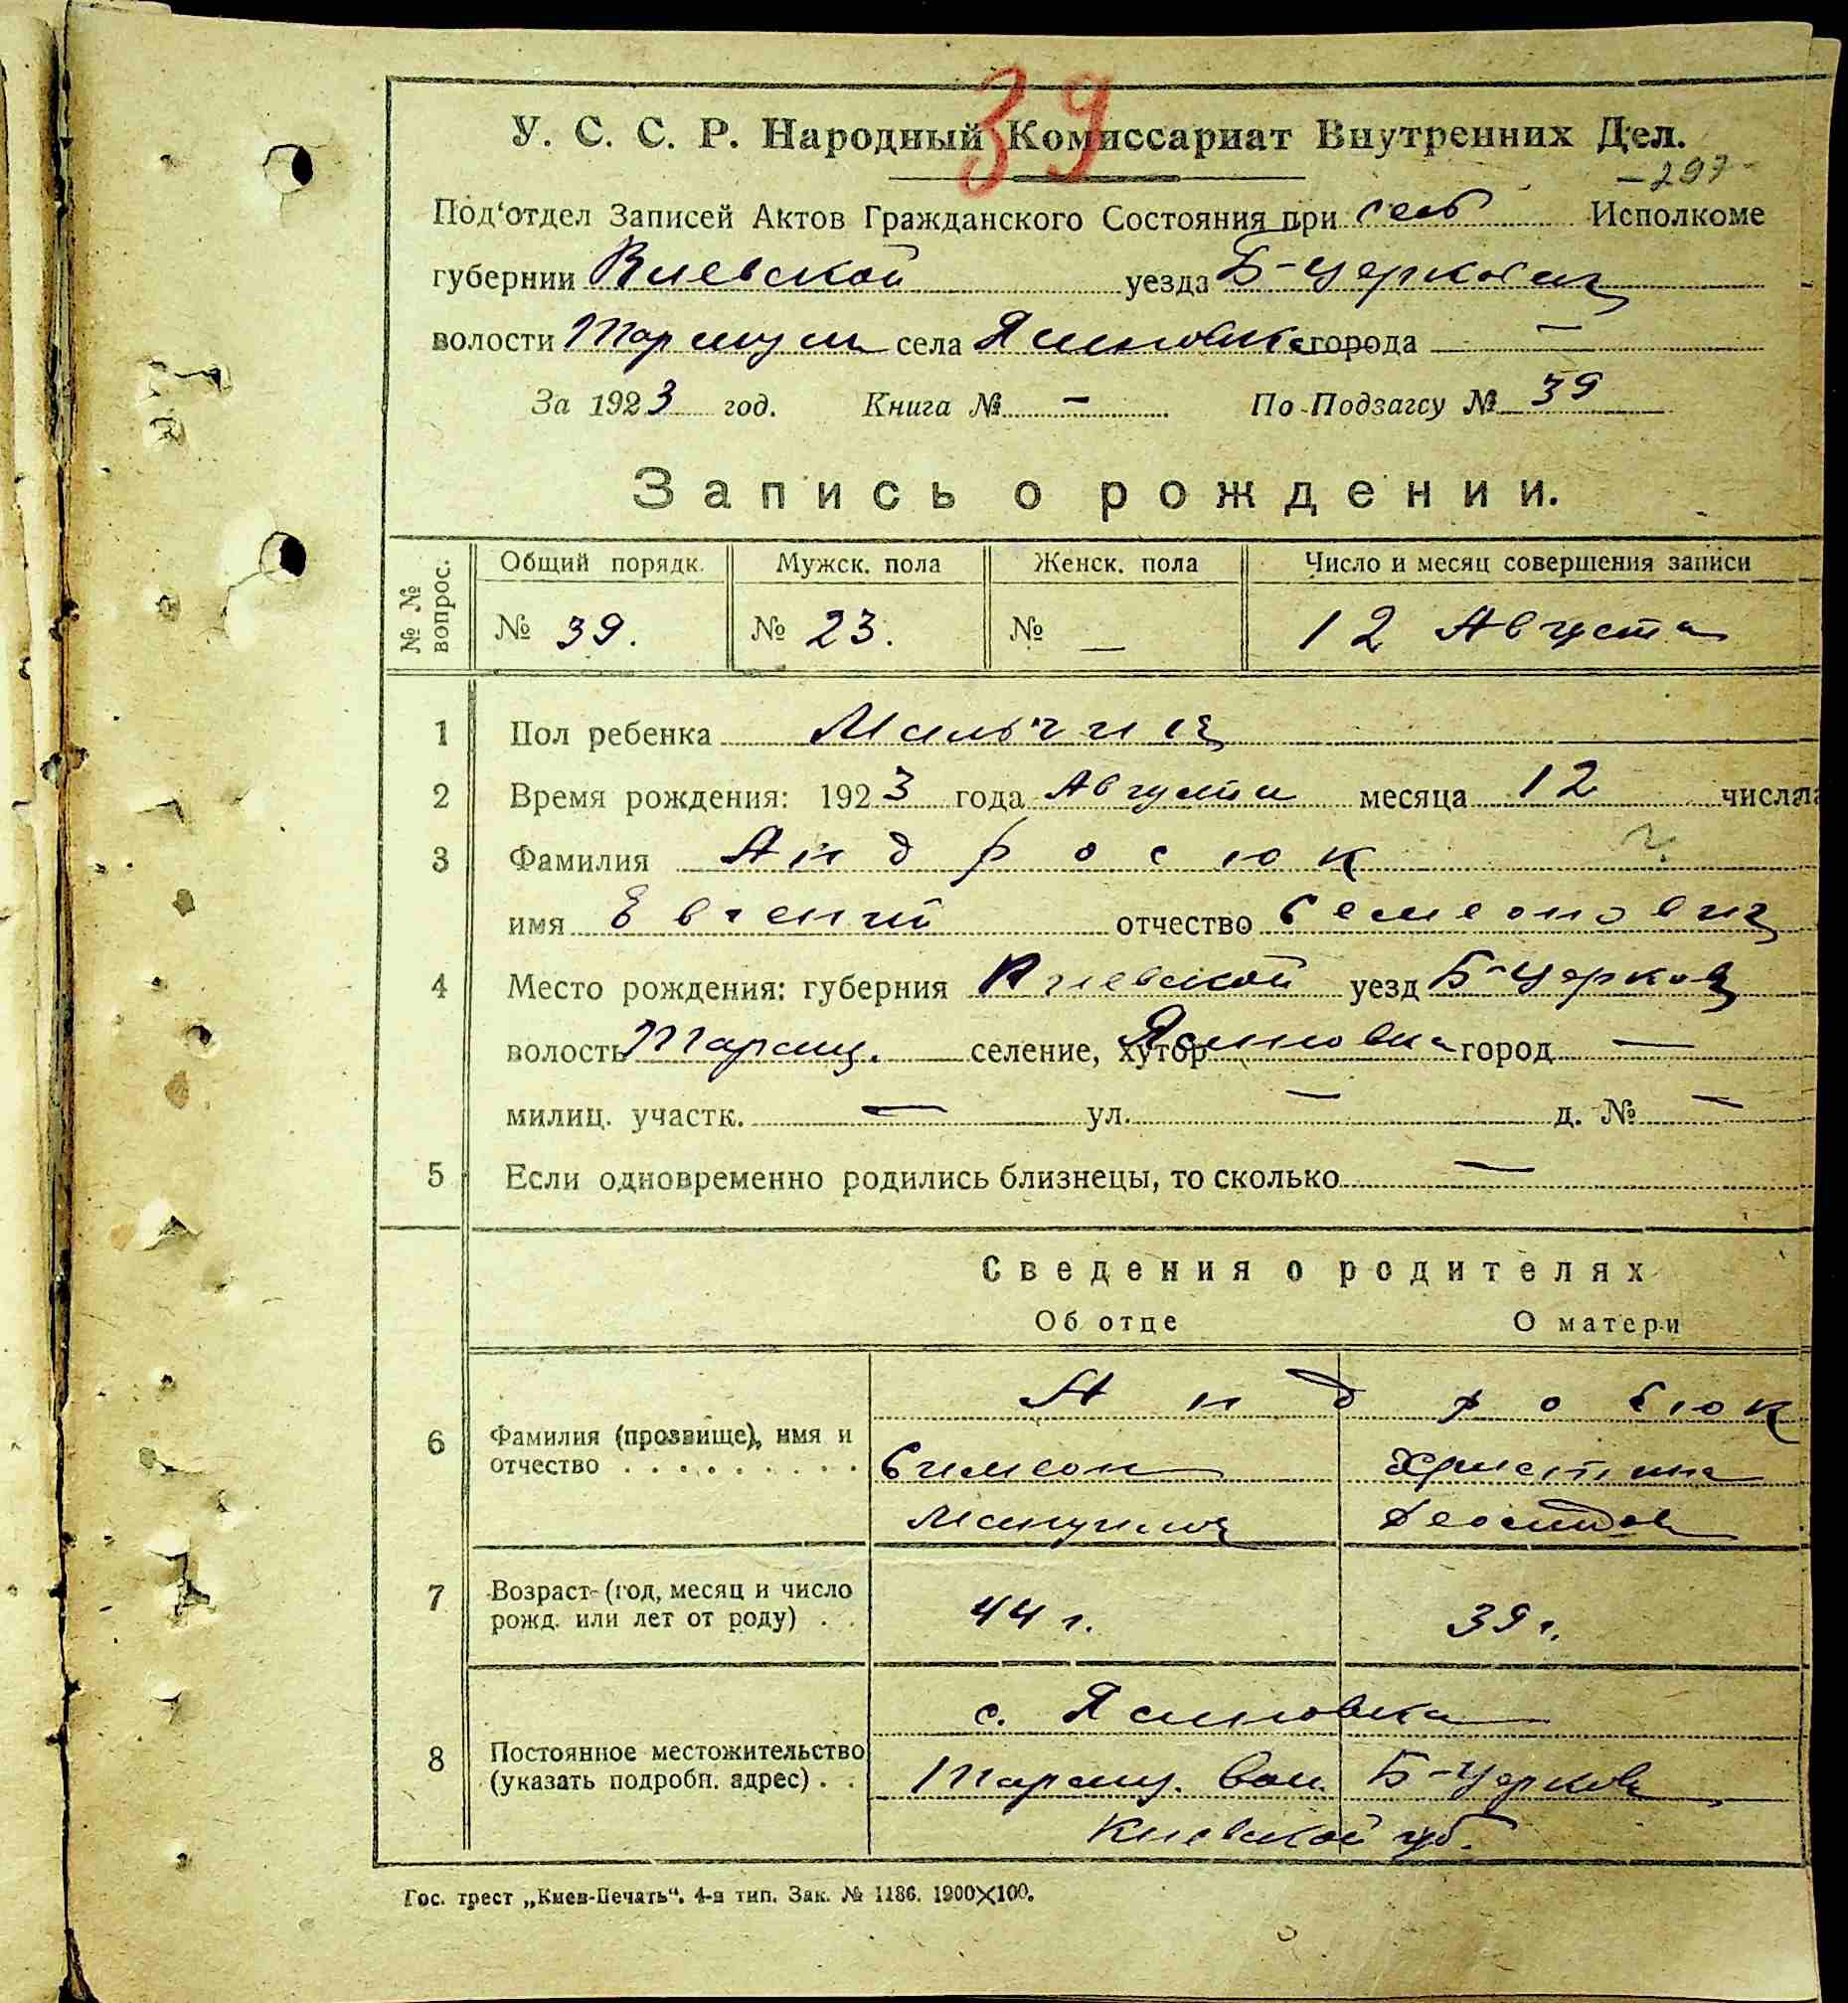 39
У. С. С. Р. Народный Комиссариат Внутренних Дел.
- 297 -
Под'отдел Записей Актов Гражданского Состояния при сель Исполкоме
губернии Киевской уезда Б-Церковск
волости Таращан села Ясиновка города —
За 1923 год. Книга № — По Подзагсу № 39
Запись о рождении.
№ № вопрос. Общий порядк. Мужск. пола Женск. пола Число и месяц совершения записи
№ 39. № 23. № — 12 Августа
1 Пол ребенка Мальчик
2 Время рождения: 1923 года Августа месяца 12 числа
3 Фамилия Андросюк
имя Евгений отчество Семеонович
4 Место рождения: губерния Киевской уезд Б-Церков
волость Таращ. селение, хутор Ясиновка город —
милиц. участк. — ул. — д. № —
5 Если одновременно родились близнецы, то сколько —
Сведения о родителях
Об отце О матери
Андросюк
6 Фамилия (прозвище), имя и
отчество . . . . . . . . . Симеон Христина
7 Возраст (год, месяц и число
рожд. или лет от роду) . . 44 г. 39 г.
с. Ясиновка
8 Постоянное местожительство
(указать подробн. адрес) . . Таращ. вол. Б-Церков
Киевской губ.
Гос. трест „Киев-Печать“. 4-я тип. Зак. № 1186. 1900×100.